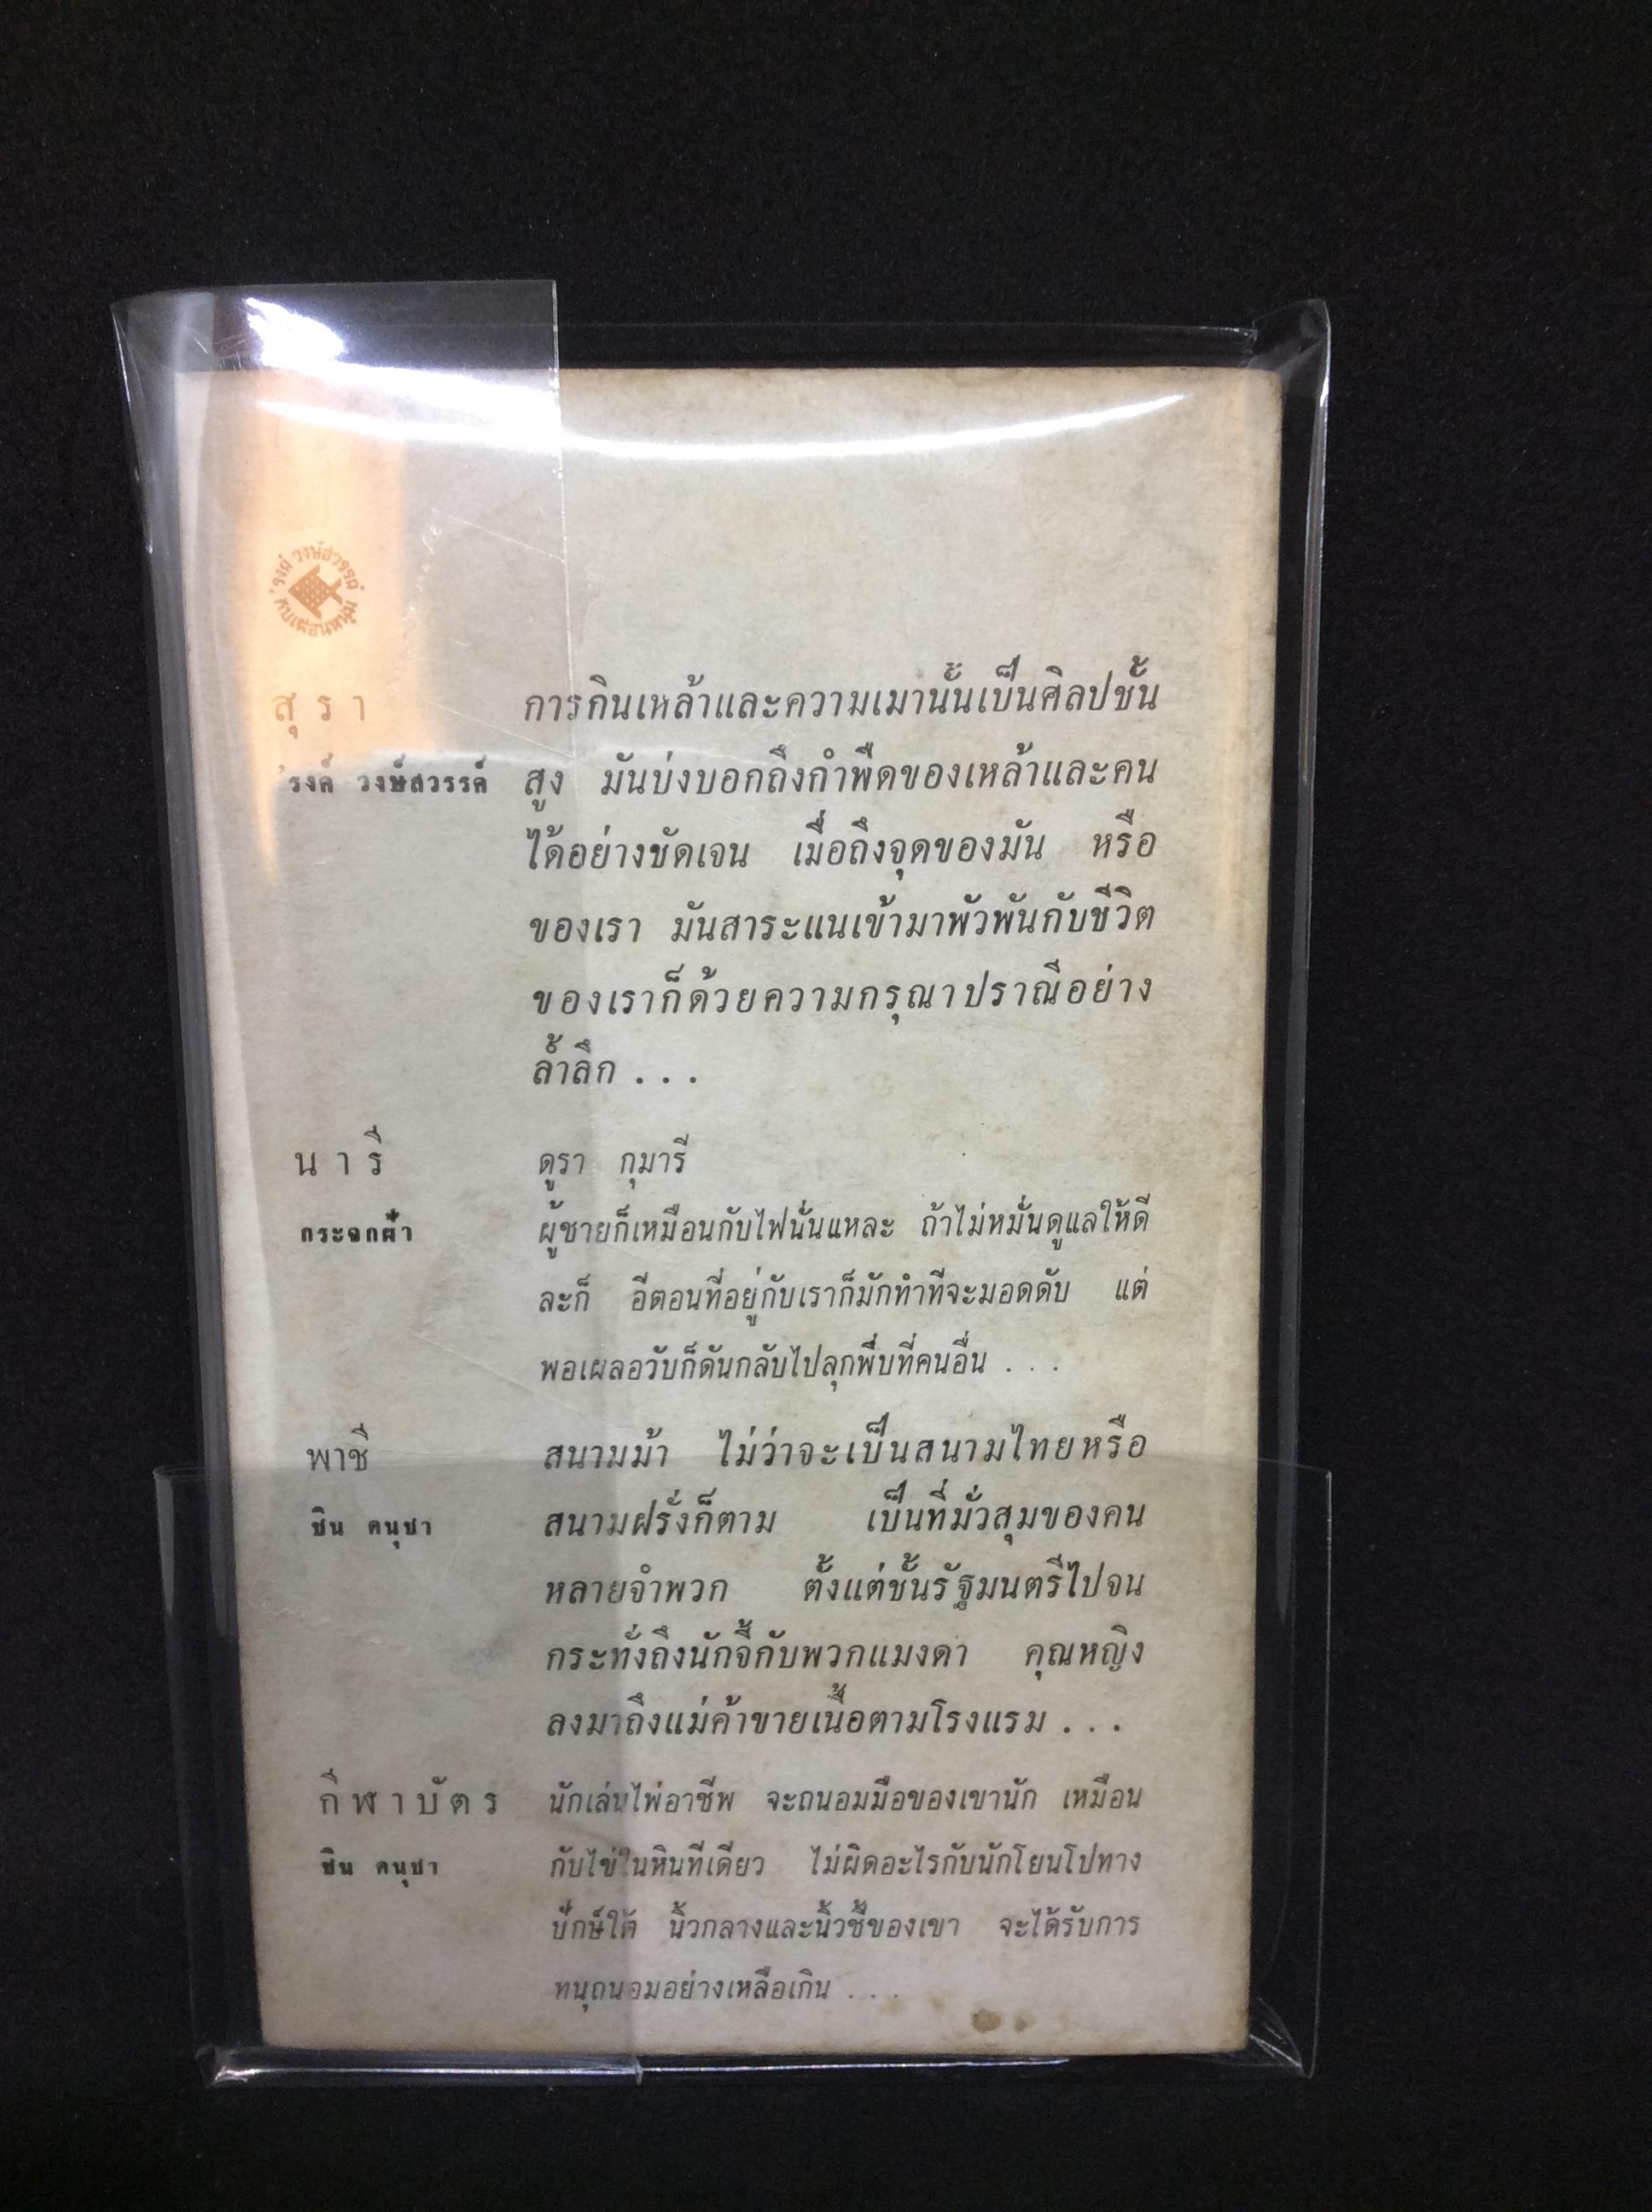 'รงค์ วงษ์สวรรค์
กับเพื่อนหนุ่ม
สุรา
'รงค์ วงษ์สวรรค์
การกินเหล้าและความเมานั้นเป็นศิลปชั้น
สูง มันบ่งบอกถึงกำพืดของเหล้าและคน
ได้อย่างชัดเจน เมื่อถึงจุดของมัน หรือ
ของเรา มันสาระแนเข้ามาพัวพันกับชีวิต
ของเราก็ด้วยความกรุณาปราณีอย่าง
ล้ำลึก . . .
นารี
กระจกฝ้า
ดูรา กุมารี
ผู้ชายก็เหมือนกับไฟนั่นแหละ ถ้าไม่หมั่นดูแลให้ดี
ละก็ อีตอนที่อยู่กับเราก็มักทำทีจะมอดดับ แต่
พอเผลอวับก็ดันกลับไปลุกพึ่บที่คนอื่น . . .
พาชี
ชิน คนุชา
สนามม้า ไม่ว่าจะเป็นสนามไทยหรือ
สนามฝรั่งก็ตาม เป็นที่มั่วสุมของคน
หลายจำพวก ตั้งแต่ชั้นรัฐมนตรีไปจน
กระทั่งถึงนักจี้กับพวกแมงดา คุณหญิง
ลงมาถึงแม่ค้าขายเนื้อตามโรงแรม . . .
กีฬาบัตร
ชิน คนุชา
นักเล่นไพ่อาชีพ จะถนอมมือของเขานัก เหมือน
กับไข่ในหินทีเดียว ไม่ผิดอะไรกับนักโยนโปทาง
ปักษ์ใต้ นิ้วกลางและนิ้วชี้ของเขา จะได้รับการ
ทนุถนอมอย่างเหลือเกิน . . .